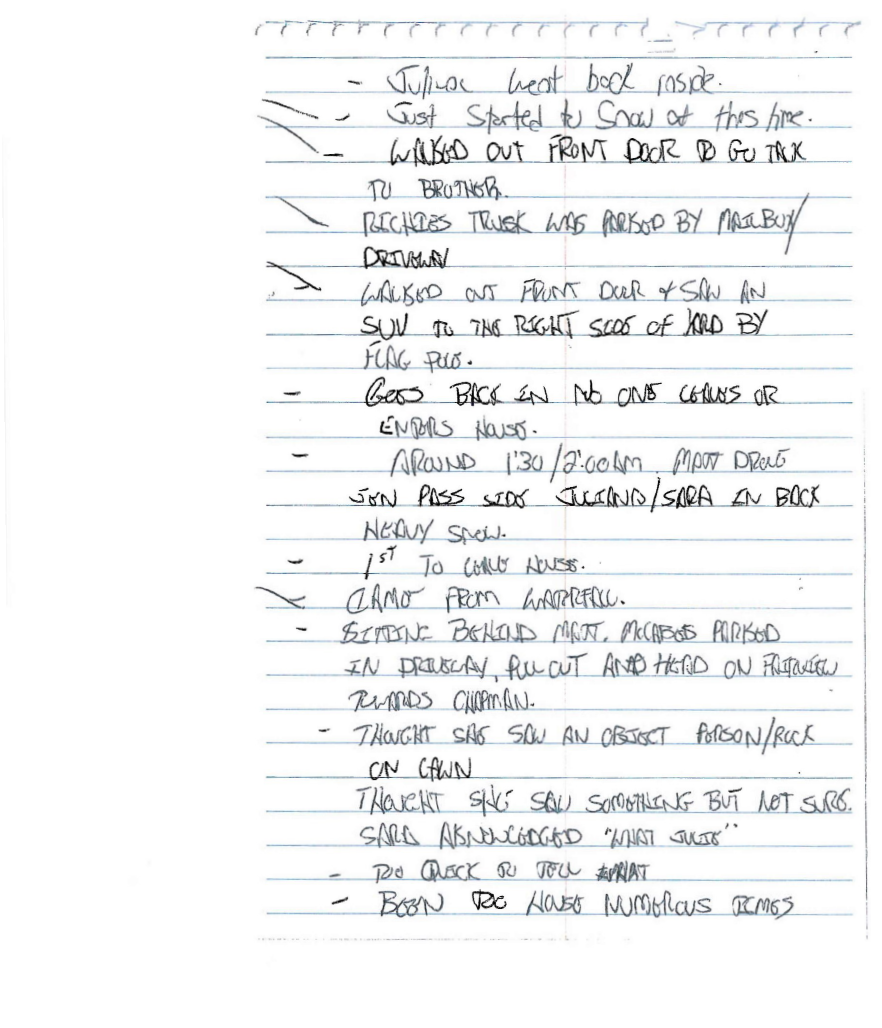 - Juliana went back inside.
- Just Started to Snow at this time.
- WALKED OUT FRONT DOOR TO GO TALK
TO BROTHER.
RICHIES TRUCK WAS PARKED BY MAILBOX/
DRIVEWAY
WALKED OUT FRONT DOOR & SAW AN
SUV TO THE RIGHT SIDE of YARD BY
FLAG POLE.
- GOES BACK IN NO ONE LEAVES OR
ENTERS HOUSE.
- AROUND 1:30/2:00AM MATT DROVE
JEN PASS SIDE JULIANA/SARA IN BACK
HEAVY SNOW.
- 1ST TO LEAVE HOUSE.
CAME FROM WATERFALL.
- SITTING BEHIND MATT. MCCABES PARKED
IN DRIVEWAY, PULL OUT AND HEAD ON FAIRVIEW
TOWARDS CHAPMAN.
- THOUGHT SHE SAW AN OBJECT PERSON/ROCK
ON LAWN
THOUGHT SHE SAW SOMETHING BUT NOT SURE.
SARA AKNOWLEDGED "WHAT JULIE"
- TOO QUICK TO TELL
- BEEN TO HOUSE NUMEROUS TIMES